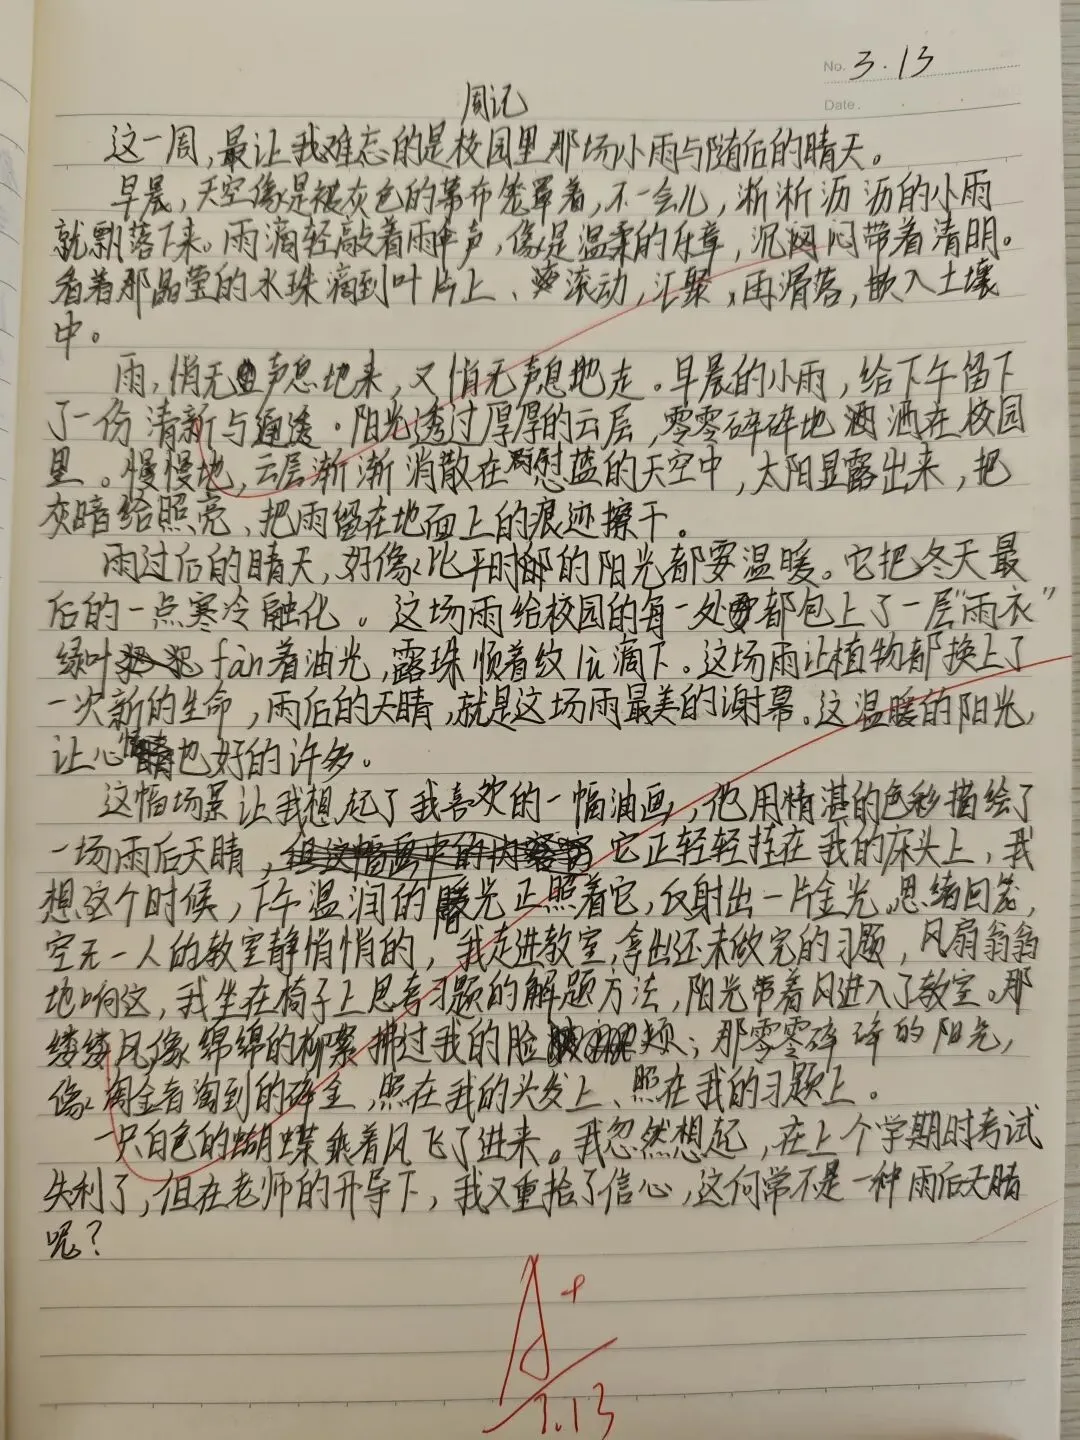 No. 3.13
Date.
周记
这一周，最让我难忘的是校园里那场小雨与随后的晴天。
早晨，天空像是被灰色的幕布笼罩着，不一会儿，淅淅沥沥的小雨
就飘落下来。雨滴轻敲着雨伞声，像是温柔的乐章，沉闷闷带着清明。
看着那晶莹的水珠滴到叶片上、滚动，汇聚，再滑落，嵌入土壤
中。
雨，悄无声息地来，又悄无声息地走。早晨的小雨，给下午留下
了一份清新与通透。阳光透过厚厚的云层，零零碎碎地洒在校园
里。慢慢地，云层渐渐消散在蓝的天空中，太阳显露出来，把
灰暗给照亮、把雨留在地面上的痕迹擦干。
雨过后的晴天，好像比平时的阳光都要温暖。它把冬天最
后的一点寒冷融化。这场雨给校园的每一处都包上了一层“雨衣”
绿叶fàn着油光，露珠顺着纹lù滴下。这场雨让植物都换上了
一次新的生命，雨后的天晴，就是这场雨最美的谢幕。这温暖的阳光，
让心情也好的许多。
这幅场景让我想起了我喜欢的一幅油画，他用精湛的色彩描绘了
一场雨后天晴，它正轻轻挂在我的床头上，我
想这个时候，下午温润的暖光正照着它，反射出一片金光。思绪回笼，
空无一人的教室静悄悄的，我走进教室，拿出还未做完的习题，风扇翁翁
地响这，我坐在椅子上思考习题的解题方法，阳光带着风进入了教室。那
缕缕风像绵绵的柳絮拂过我的脸颊；那零零碎碎的阳光，
像淘金者淘到的碎金，照在我的头发上、照在我的习题上。
一只白色的蝴蝶乘着风飞了进来。我忽然想起，在上个学期时考试
失利了，但在老师的开导下，我又重拾了信心，这何常不是一种雨后天晴
呢？
A+
3.13